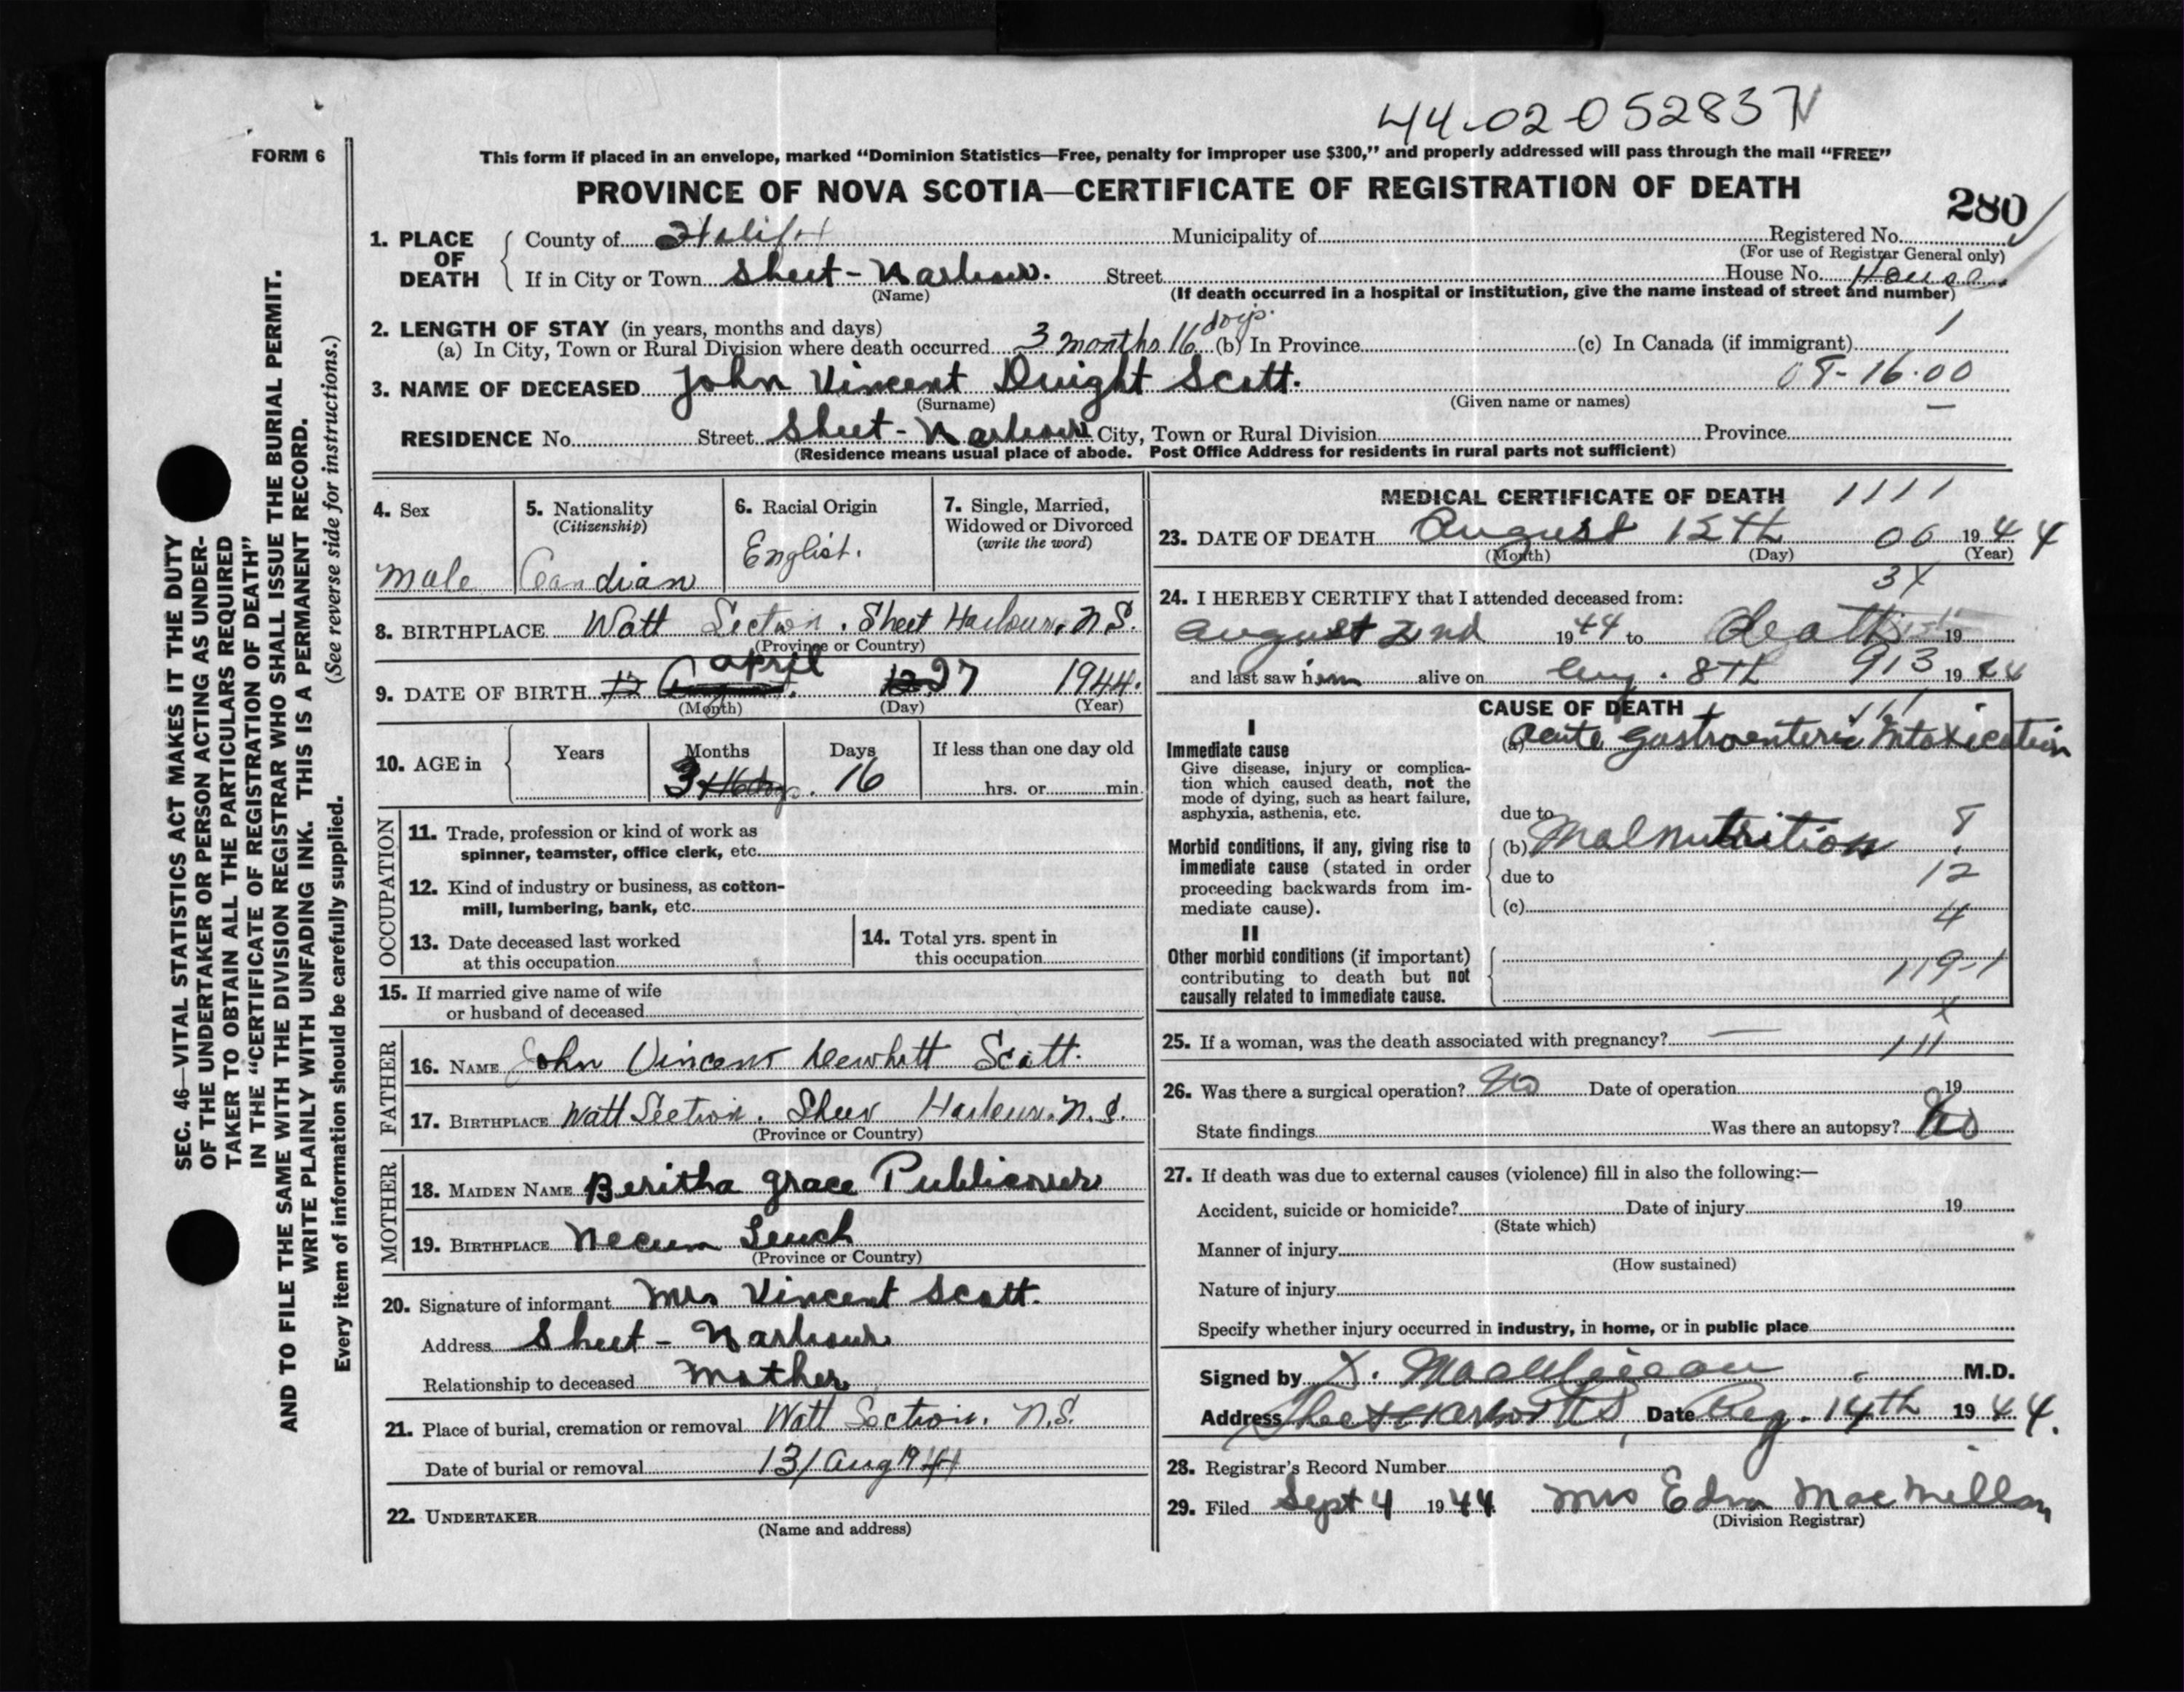 44-02-052837
FORM 6
This form if placed in an envelope, marked “Dominion Statistics—Free, penalty for improper use $300,” and properly addressed will pass through the mail “FREE”
PROVINCE OF NOVA SCOTIA—CERTIFICATE OF REGISTRATION OF DEATH
280
1. PLACE OF DEATH
County of Halifax Municipality of Registered No.
(For use of Registrar General only)
If in City or Town Sheet-Harbour. Street House No. House
(Name)
(If death occurred in a hospital or institution, give the name instead of street and number)
2. LENGTH OF STAY (in years, months and days)
(a) In City, Town or Rural Division where death occurred 3 months 16 days. (b) In Province (c) In Canada (if immigrant)
3. NAME OF DECEASED John Vincent Dwight Scott. 08-16-00
(Surname) (Given name or names)
RESIDENCE No. Street Sheet-Harbour City, Town or Rural Division Province
(Residence means usual place of abode. Post Office Address for residents in rural parts not sufficient)
4. Sex
male
5. Nationality
(Citizenship)
Candian
6. Racial Origin
English.
7. Single, Married,
Widowed or Divorced
(write the word)
8. BIRTHPLACE Watt Section. Sheet Harbour, N.S.
(Province or Country)
9. DATE OF BIRTH april 27 1944.
(Month) (Day) (Year)
10. AGE in
Years Months Days If less than one day old
3 16 hrs. or min.
OCCUPATION
11. Trade, profession or kind of work as
spinner, teamster, office clerk, etc.
12. Kind of industry or business, as cotton-
mill, lumbering, bank, etc.
13. Date deceased last worked
at this occupation
14. Total yrs. spent in
this occupation
15. If married give name of wife
or husband of deceased
FATHER
16. NAME John Vincent Scott.
17. BIRTHPLACE Watt Section. Sheet Harbour. N.S.
(Province or Country)
MOTHER
18. MAIDEN NAME Beritha Grace Publicover
19. BIRTHPLACE Necum Teuch
(Province or Country)
20. Signature of informant Mrs Vincent Scott.
Address Sheet-Harbour
Relationship to deceased Mother
21. Place of burial, cremation or removal Watt Section. N.S.
Date of burial or removal 13/Aug 1944
22. UNDERTAKER
(Name and address)
MEDICAL CERTIFICATE OF DEATH 1111
23. DATE OF DEATH August 12th 00 1944
(Month) (Day) (Year)
24. I HEREBY CERTIFY that I attended deceased from:
August 2nd 1944 to death 19
and last saw him alive on Aug. 8th 913 1944
CAUSE OF DEATH
I
Immediate cause
Give disease, injury or complica-
tion which caused death, not the
mode of dying, such as heart failure,
asphyxia, asthenia, etc.
(a) Acute Gastroenteric Intoxication
due to
Morbid conditions, if any, giving rise to
immediate cause (stated in order
proceeding backwards from im-
mediate cause).
(b) Malnutrition 8
due to 12
(c) 4
II
Other morbid conditions (if important)
contributing to death but not
causally related to immediate cause.
119-1
25. If a woman, was the death associated with pregnancy? — 111
26. Was there a surgical operation? No Date of operation 19
State findings Was there an autopsy? No
27. If death was due to external causes (violence) fill in also the following:—
Accident, suicide or homicide? Date of injury 19
(State which)
Manner of injury
(How sustained)
Nature of injury
Specify whether injury occurred in industry, in home, or in public place
Signed by M.D.
Address Sheet Harbor NS Date Aug. 14th 1944.
28. Registrar’s Record Number
29. Filed Sept 4 1944 Mrs Edna MacMillan
(Division Registrar)
SEC. 46—VITAL STATISTICS ACT MAKES IT THE DUTY
OF THE UNDERTAKER OR PERSON ACTING AS UNDER-
TAKER TO OBTAIN ALL THE PARTICULARS REQUIRED
IN THE “CERTIFICATE OF REGISTRATION OF DEATH”
AND TO FILE THE SAME WITH THE DIVISION REGISTRAR WHO SHALL ISSUE THE BURIAL PERMIT.
WRITE PLAINLY WITH UNFADING INK. THIS IS A PERMANENT RECORD.
(See reverse side for instructions.)
Every item of information should be carefully supplied.